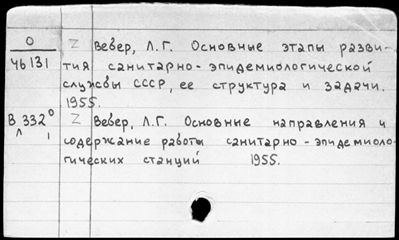 О
46131
Z Вебер, Л.Г. Основные этапы разви-
тия санитарно-эпидемиологической
службы СССР, ее структура и задачи.
1955.
В 332⁰
л 1
Z Вебер, Л.Г. Основные направления и
содержание работы санитарно-эпидемиоло-
гических станций 1955.